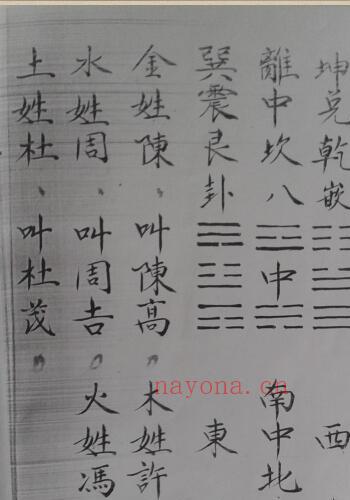 坤兌乾嵌 西
離中坎八 中 南中北
巽震艮卦 東
金姓陳、叫陳高。木姓許
水姓周、叫周吉。火姓馮
土姓杜、叫杜茂。
nayona.cn